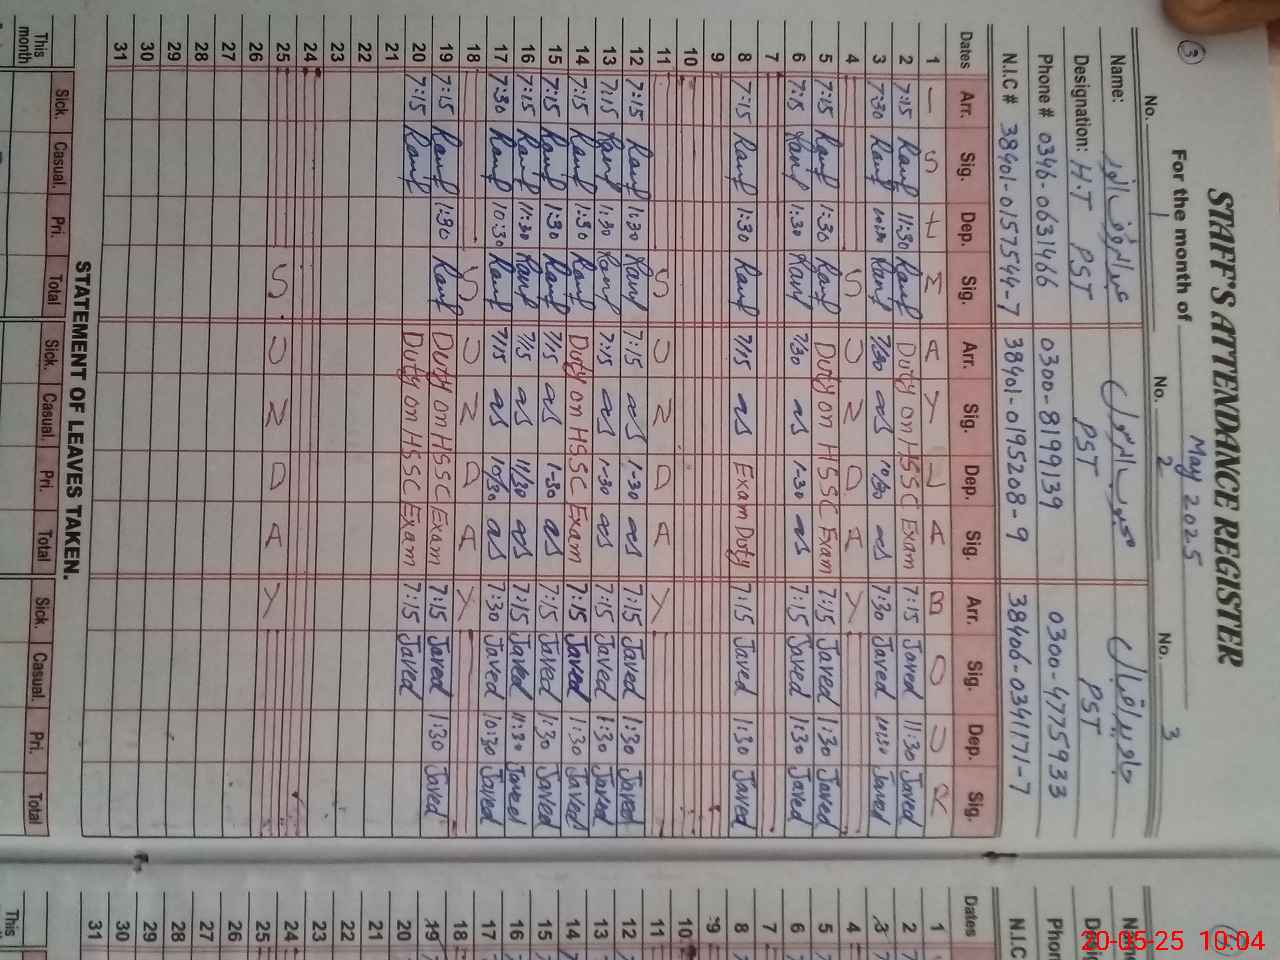 3
STAFF'S ATTENDANCE REGISTER
For the month of May 2025
No. 1 No. 2 No. 3
Name: عبدالرؤف انور محبوب الرسول جاوید اقبال
Designation: H.T PST PST PST
Phone # 0346-0631466 0300-8199139 0300-4775933
N.I.C # 38401-0157544-7 38401-0195208-9 38406-0341171-7
Dates Arr. Sig. Dep. Sig. Arr. Sig. Dep. Sig. Arr. Sig. Dep. Sig.
1 — S t M A Y L A B O U R
2 7:15 Rauf 11:30 Rauf Duty on HSSC Exam 7:15 Javed 11:30 Javed
3 7:30 Rauf 10:30 Rauf 7/30 as 10/30 as 7:30 Javed 10:30 Javed
4 S U N D A Y
5 7:15 Rauf 1:30 Rauf Duty on HSSC Exam 7:15 Javed 1:30 Javed
6 7:15 Rauf 1:30 Rauf 7/30 as 1-30 as 7:15 Javed 1:30 Javed
7
8 7:15 Rauf 1:30 Rauf 7/15 as Exam Duty 7:15 Javed 1:30 Javed
9
10
11 S U N D A Y
12 7:15 Rauf 1:30 Rauf 7:15 as 1-30 as 7:15 Javed 1:30 Javed
13 7:15 Rauf 1:30 Rauf 7:15 as 1-30 as 7:15 Javed 1:30 Javed
14 7:15 Rauf 1:30 Rauf Duty on HSSC Exam 7:15 Javed 1:30 Javed
15 7:15 Rauf 1:30 Rauf 7/15 as 1-30 as 7:15 Javed 1:30 Javed
16 7:15 Rauf 11:30 Rauf 7/15 as 11/30 as 7:15 Javed 11:30 Javed
17 7:30 Rauf 10:30 Rauf 7/15 as 10/30 as 7:30 Javed 10:30 Javed
18 S U N D A Y
19 7:15 Rauf 1:30 Rauf Duty on HSSC Exam 7:15 Javed 1:30 Javed
20 7:15 Rauf Duty on HSSC Exam 7:15 Javed
21
22
23
24
25 S U N D A Y
26
27
28
29
30
31
STATEMENT OF LEAVES TAKEN.
Sick. Casual. Pri. Total Sick. Casual. Pri. Total Sick. Casual. Pri. Total
This month
Dates
1
2
3
4
5
6
7
8
9
10
11
12
13
14
15
16
17
18
19
20
21
22
23
24
25
26
27
28
29
30
31
This
N.I.C
20-05-25 10:04